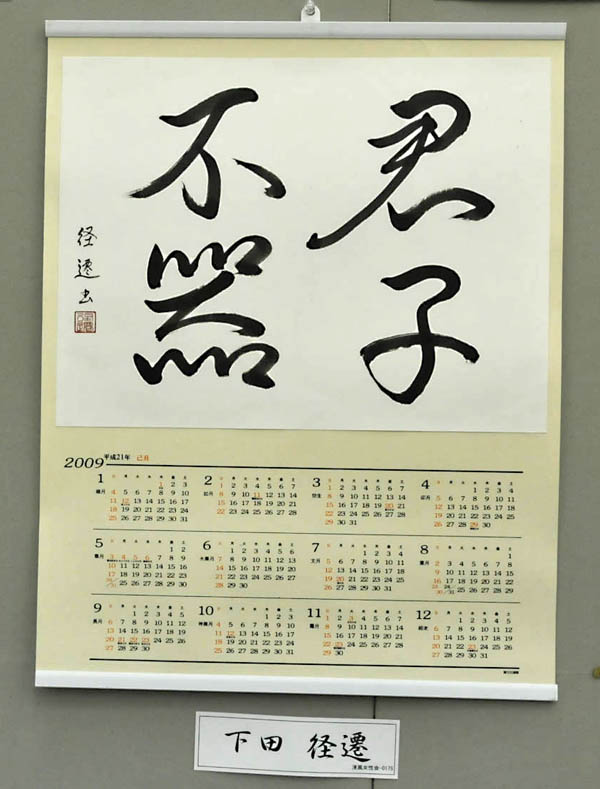 君子
不器
径遷書
2009 平成21年 己丑
1 睦月
日 月 火 水 木 金 土
1 2 3
4 5 6 7 8 9 10
11 12 13 14 15 16 17
18 19 20 21 22 23 24
25 26 27 28 29 30 31
2 如月
日 月 火 水 木 金 土
1 2 3 4 5 6 7
8 9 10 11 12 13 14
15 16 17 18 19 20 21
22 23 24 25 26 27 28
3 弥生
日 月 火 水 木 金 土
1 2 3 4 5 6 7
8 9 10 11 12 13 14
15 16 17 18 19 20 21
22 23 24 25 26 27 28
29 30 31
4 卯月
日 月 火 水 木 金 土
1 2 3 4
5 6 7 8 9 10 11
12 13 14 15 16 17 18
19 20 21 22 23 24 25
26 27 28 29 30
5 皐月
日 月 火 水 木 金 土
1 2
3 4 5 6 7 8 9
10 11 12 13 14 15 16
17 18 19 20 21 22 23
24/31 25 26 27 28 29 30
6 水無月
日 月 火 水 木 金 土
1 2 3 4 5 6
7 8 9 10 11 12 13
14 15 16 17 18 19 20
21 22 23 24 25 26 27
28 29 30
7 文月
日 月 火 水 木 金 土
1 2 3 4
5 6 7 8 9 10 11
12 13 14 15 16 17 18
19 20 21 22 23 24 25
26 27 28 29 30 31
8 葉月
日 月 火 水 木 金 土
1
2 3 4 5 6 7 8
9 10 11 12 13 14 15
16 17 18 19 20 21 22
23/30 24/31 25 26 27 28 29
9 長月
日 月 火 水 木 金 土
1 2 3 4 5
6 7 8 9 10 11 12
13 14 15 16 17 18 19
20 21 22 23 24 25 26
27 28 29 30
10 神無月
日 月 火 水 木 金 土
1 2 3
4 5 6 7 8 9 10
11 12 13 14 15 16 17
18 19 20 21 22 23 24
25 26 27 28 29 30 31
11 霜月
日 月 火 水 木 金 土
1 2 3 4 5 6 7
8 9 10 11 12 13 14
15 16 17 18 19 20 21
22 23 24 25 26 27 28
29 30
12 師走
日 月 火 水 木 金 土
1 2 3 4 5
6 7 8 9 10 11 12
13 14 15 16 17 18 19
20 21 22 23 24 25 26
27 28 29 30 31
下田 径遷
清風女性会-0175